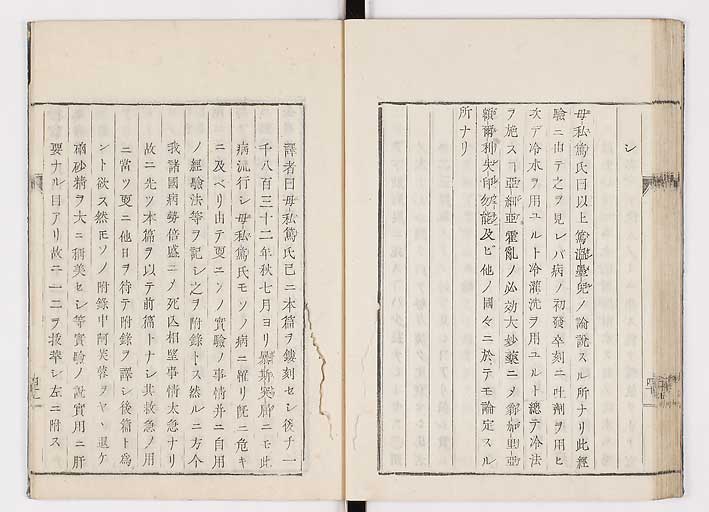 シ
母私篤氏曰以上篤温墨児ノ論説スル所ナリ此經
驗ニ由テ之ヲ見レバ病ノ初發卒刻ニ吐劑ヲ用ヒ
次デ冷水ヲ用ユルト冷灌洗ヲ用ユルト總テ冷法
ヲ施スヿ亞細亞霍亂ノ必効大妙藥ニメ翁加里亞
額爾利失印勿能及ビ他ノ國々ニ於テモ論定スル
所ナリ
譯者曰母私篤氏已ニ本篇ヲ鏤刻セシ後チ一
千八百三十二年秋七月ヨリ ニモ此
病流行シ母私篤氏モソノ病ニ罹リ既ニ危キ
ニ及ベリ由テ更ニソノ實驗ノ事情并ニ自用
ノ經驗法等ヲ記シ之ヲ附錄トス然ルニ方今
我諸國病勢倍盛ニメ死亾相望事情太急ナリ
故ニ先ツ本篇ヲ以テ前篇トナシ其救急ノ用
ニ當ツ更ニ他日ヲ待テ附錄ヲ譯シ後篇ト爲
ント欲ス然モソノ附錄中阿芙蓉ヲヤヽ退ケ
硇砂精ヲ大ニ稱美セシ等實驗ノ說實用ニ肝
要ナル目アリ故ニ一二ヲ拔萃シ左ニ附ス